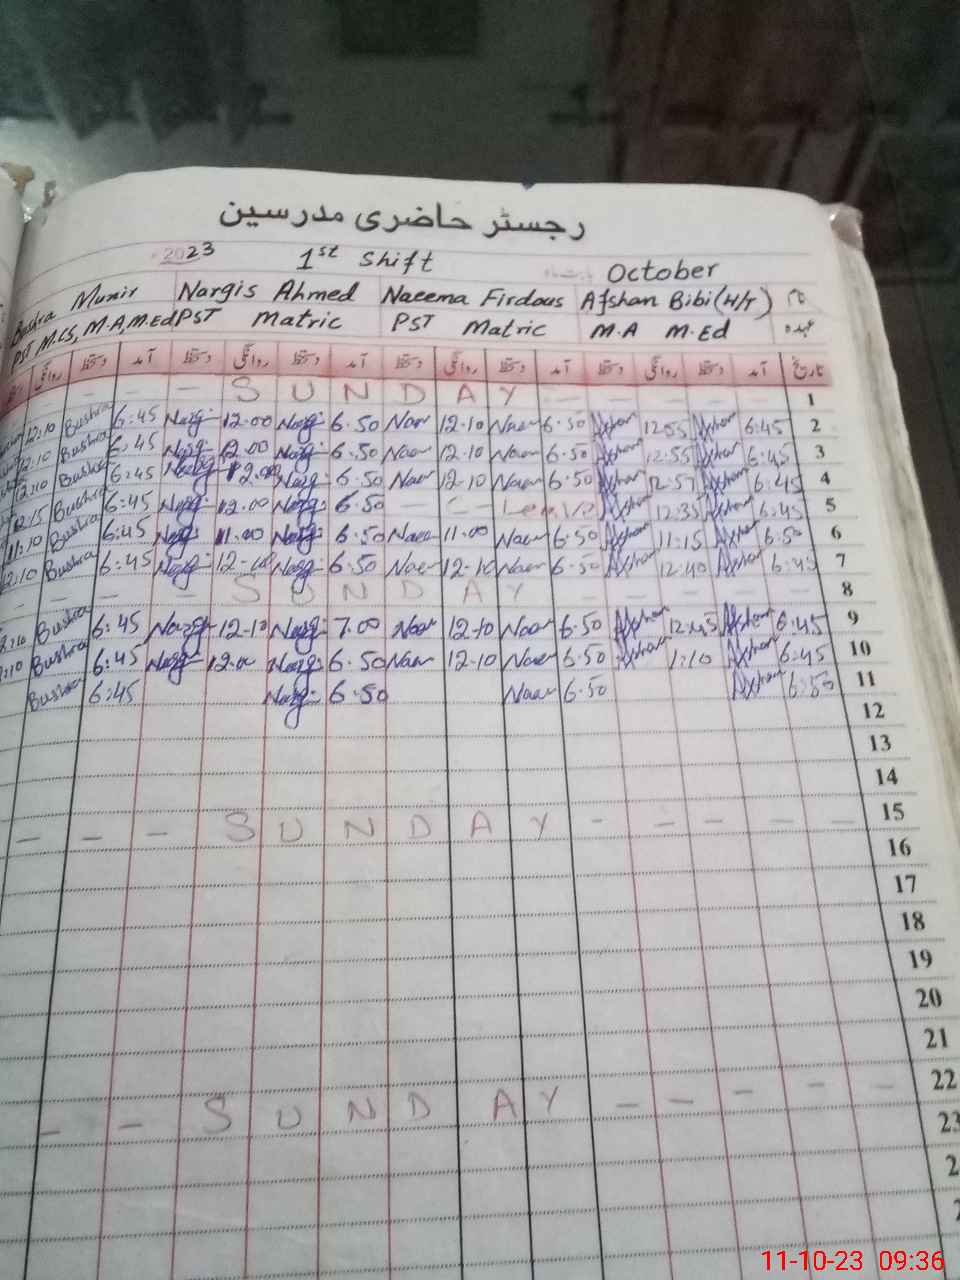 رجسٹر حاضری مدرسین
2023 1st Shift October
Bushra Munir Nargis Ahmed Naeema Firdous Afshan Bibi (H/T) نام
PST M.CS, M.A, M.Ed PST Matric PST Matric M.A M.Ed عہدہ
روانگی دستخط آمد دستخط روانگی دستخط آمد دستخط روانگی دستخط آمد دستخط روانگی دستخط آمد تاریخ
- - - S U N D A Y - - - - 1
12:10 Bushra 6:45 Narg- 12.00 Narg- 6.50 Naee 12.10 Naee 6.50 Afshan 12:55 Afshan 6:45 2
12:10 Bushra 6:45 Narg- 12.00 Narg- 6.50 Naee 12.10 Naee 6.50 Afshan 12:55 Afshan 6:45 3
12:10 Bushra 6:45 Narg- 12.00 Narg- 6.50 Naee 12-10 Naee 6.50 Afshan 12:57 Afshan 6:45 4
12:15 Bushra 6:45 Narg- 12.00 Narg- 6.50 - C - Leave Afshan 12:35 Afshan 6:45 5
11:10 Bushra 6:45 Narg- 11.00 Narg- 6.50 Naee 11.00 Naee 6.50 Afshan 11:15 Afshan 6:50 6
12:10 Bushra 6:45 Narg- 12-10 Narg- 6.50 Naee 12-10 Naee 6.50 Afshan 12:40 Afshan 6:45 7
- - - - S U N D A Y - - - - 8
Bushra 6:45 Narg- 12-10 Narg- 7.00 Naee 12-10 Naee 6.50 Afshan 12:45 Afshan 6:45 9
Bushra 6:45 Narg- 12.00 Narg- 6.50 Naee 12.10 Naee 6.50 Afshan 1:10 Afshan 6:45 10
Bushra 6:45 Narg- 6.50 Naee 6.50 Afshan 6:53 11
12
13
14
- - - S U N D A Y - - - - - 15
16
17
18
19
20
21
- - S U N D A Y - - - - - 22
23
11-10-23 09:36